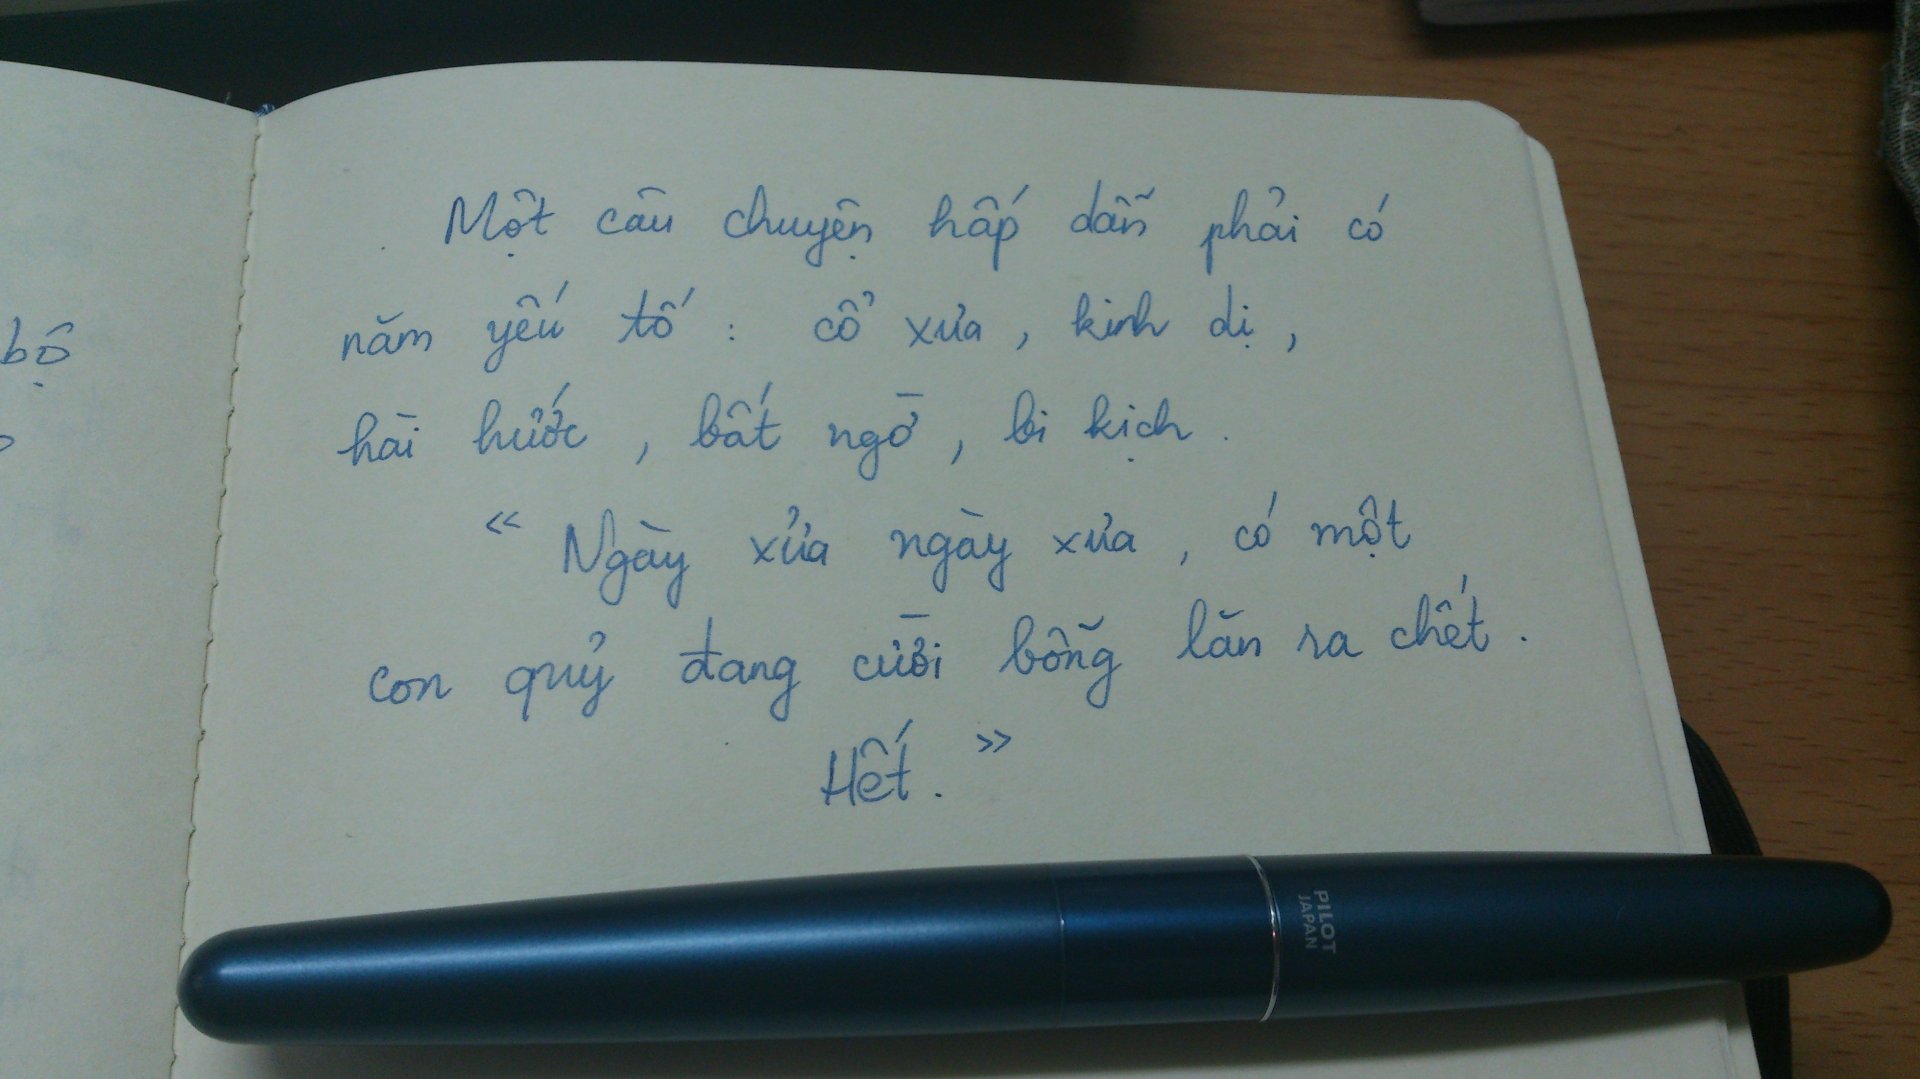 bộ
Một câu chuyện hấp dẫn phải có
năm yếu tố : cổ xưa , kinh dị ,
hài hước , bất ngờ , bi kịch .
« Ngày xửa ngày xưa , có một
con quỷ đang cười bỗng lăn ra chết .
Hết . »
PILOT
JAPAN